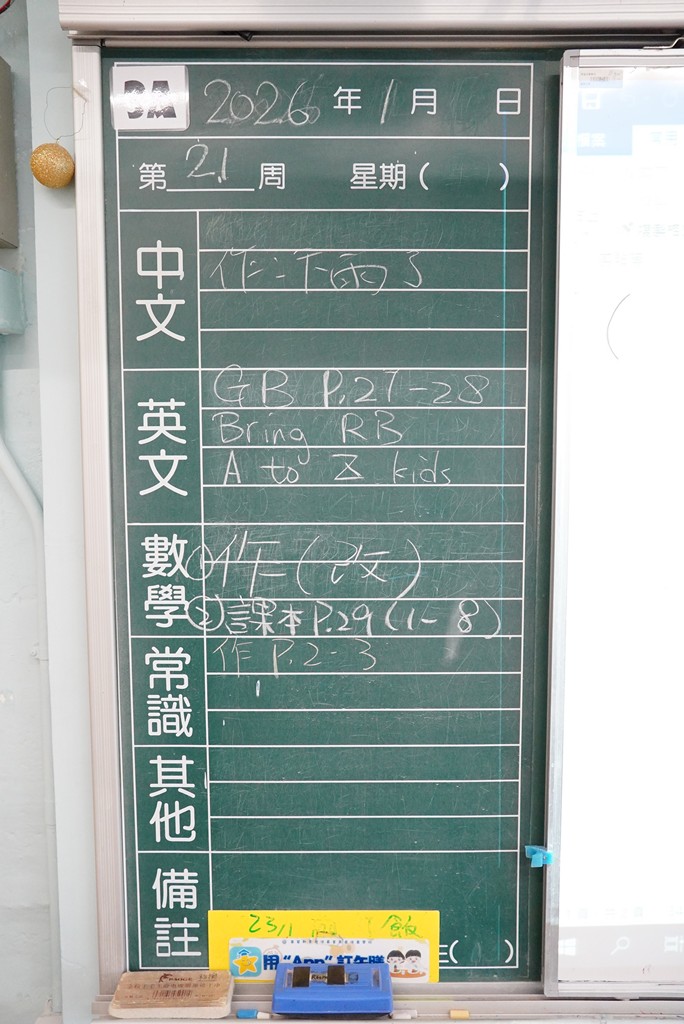 3A 2026年1月 日
第21周 星期( )
中文
作:下雨了
英文
GB P.27-28
Bring RB
A to Z kids
數學
①作(改)
②課本P.29(1-8)
常識
作P.2-3
其他
備註
23/1 飯
用“App”訂午膳